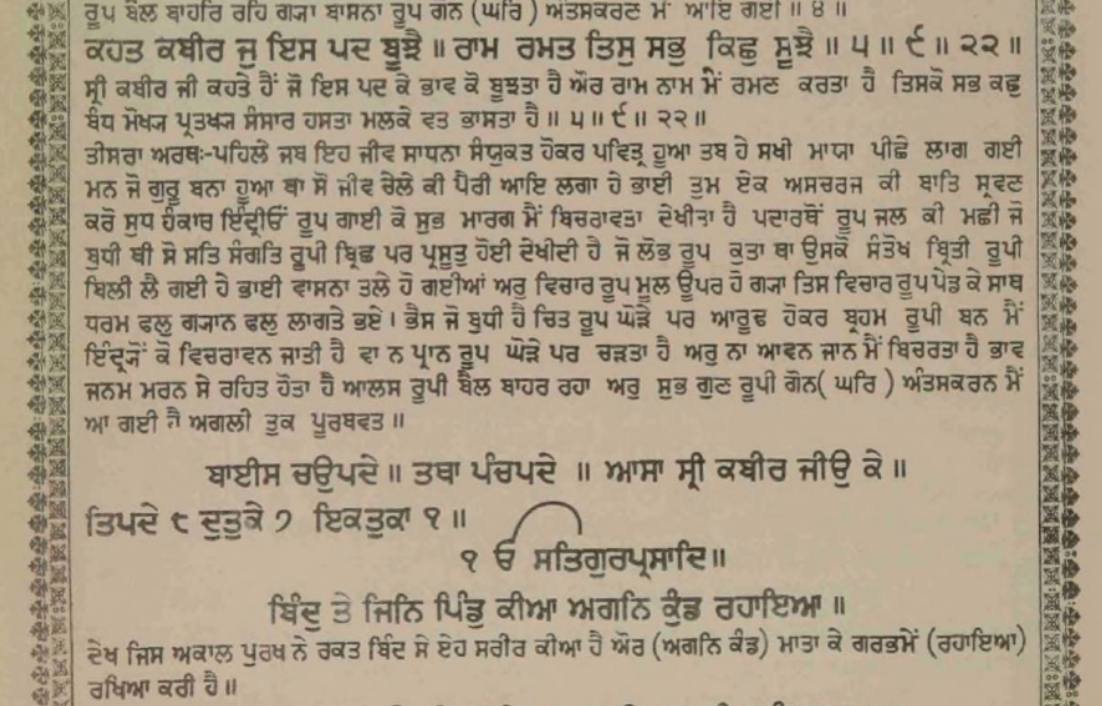 ਰੂਪ ਬੈਲ ਬਾਹਰਿ ਰਹਿ ਗਯਾ ਬਾਸਨਾ ਰੂਪ ਗੋਨ (ਘਰਿ) ਅੰਤਸਕਰਣ ਮੇਂ ਆਇ ਗਈ॥੪॥
ਕਹਤ ਕਬੀਰ ਜੁ ਇਸ ਪਦ ਬੂਝੈ॥ ਰਾਮ ਰਮਤ ਤਿਸੁ ਸਭੁ ਕਿਛੁ ਸੂਝੈ॥੫॥੯॥੨੨॥
ਸ੍ਰੀ ਕਬੀਰ ਜੀ ਕਹਤੇ ਹੈਂ ਜੋ ਇਸ ਪਦ ਕੇ ਭਾਵ ਕੋ ਬੂਝਤਾ ਹੈ ਔਰ ਰਾਮ ਨਾਮ ਮੇਂ ਰਮਣ ਕਰਤਾ ਹੈ ਤਿਸਕੋ ਸਭ ਕਛੁ
ਬੰਧ ਮੋਖੵ ਪ੍ਰਤਖੵ ਸੰਸਾਰ ਹਸਤਾ ਮਲਕੇ ਵਤ ਭਾਸਤਾ ਹੈ॥੫॥੯॥੨੨॥
ਤੀਸਰਾ ਅਰਥ:-ਪਹਿਲੇ ਜਬ ਇਹ ਜੀਵ ਸਾਧਨਾ ਸੰਯੁਕਤ ਹੋਕਰ ਪਵਿਤ੍ਰ ਹੂਆ ਤਬ ਹੇ ਸਖੀ ਮਾਯਾ ਪੀਛੇ ਲਾਗ ਗਈ
ਮਨ ਜੋ ਗੁਰੂ ਬਨਾ ਹੂਆ ਥਾ ਸੋ ਜੀਵ ਚੇਲੇ ਕੀ ਪੈਰੀ ਆਇ ਲਗਾ ਹੇ ਭਾਈ ਤੁਮ ਏਕ ਅਸਚਰਜ ਕੀ ਬਾਤਿ ਸ੍ਰਵਣ
ਕਰੋ ਸੁਧ ਹੰਕਾਰ ਇੰਦ੍ਰੀਓਂ ਰੂਪ ਗਾਈ ਕੋ ਸੁਭ ਮਾਰਗ ਮੈਂ ਬਿਚਰਾਵਤਾ ਦੇਖੀਤਾ ਹੈ ਪਦਾਰਥੋਂ ਰੂਪ ਜਲ ਕੀ ਮਛੀ ਜੋ
ਬੁਧੀ ਥੀ ਸੋ ਸਤਿ ਸੰਗਤਿ ਰੂਪੀ ਬ੍ਰਿਛ ਪਰ ਪ੍ਰਸੂਤ ਹੋਈ ਦੇਖੀਦੀ ਹੈ ਜੋ ਲੋਭ ਰੂਪ ਕੁਤਾ ਥਾ ਉਸਕੋ ਸੰਤੋਖ ਬ੍ਰਿਤੀ ਰੂਪੀ
ਬਿਲੀ ਲੈ ਗਈ ਹੇ ਭਾਈ ਵਾਸਨਾ ਤਲੇ ਹੋ ਗਈਆਂ ਅਰੁ ਵਿਚਾਰ ਰੂਪ ਮੂਲ ਊਪਰ ਹੋ ਗਯਾ ਤਿਸ ਵਿਚਾਰ ਰੂਪ ਪੇਡ ਕੇ ਸਾਥ
ਧਰਮ ਫਲੁ ਗਯਾਨ ਫਲੁ ਲਾਗਤੇ ਭਏ। ਭੈਸ ਜੋ ਬੁਧੀ ਹੈ ਚਿਤ ਰੂਪ ਘੋੜੇ ਪਰ ਆਰੂਢ ਹੋਕਰ ਬ੍ਰਹਮ ਰੂਪੀ ਬਨ ਮੈਂ
ਇੰਦ੍ਰਯੋਂ ਕੋ ਵਿਚਰਾਵਨ ਜਾਤੀ ਹੈ ਵਾ ਨ ਪ੍ਰਾਨ ਰੂਪ ਘੋੜੇ ਪਰ ਚੜਤਾ ਹੈ ਅਰੁ ਨਾ ਆਵਨ ਜਾਨ ਮੈਂ ਬਿਚਰਤਾ ਹੈ ਭਾਵ
ਜਨਮ ਮਰਨ ਸੇ ਰਹਿਤ ਹੋਤਾ ਹੈ ਆਲਸ ਰੂਪੀ ਬੈਲ ਬਾਹਰ ਰਹਾ ਅਰੁ ਸੁਭ ਗੁਣ ਰੂਪੀ ਗੋਨ( ਘਰਿ ) ਅੰਤਸਕਰਨ ਮੈਂ
ਆ ਗਈ ਹੈ ਅਗਲੀ ਤੁਕ ਪੂਰਬਵਤ॥
ਬਾਈਸ ਚਉਪਦੇ॥ ਤਥਾ ਪੰਚਪਦੇ ॥ ਆਸਾ ਸ੍ਰੀ ਕਬੀਰ ਜੀਉ ਕੇ॥
ਤਿਪਦੇ ੮ ਦੁਤੁਕੇ ੭ ਇਕਤੁਕਾ ੧॥
ੴ ਸਤਿਗੁਰਪ੍ਰਸਾਦਿ॥
ਬਿੰਦੁ ਤੇ ਜਿਨਿ ਪਿੰਡੁ ਕੀਆ ਅਗਨਿ ਕੁੰਡ ਰਹਾਇਆ॥
ਦੇਖ ਜਿਸ ਅਕਾਲ ਪੁਰਖ ਨੇ ਰਕਤ ਬਿੰਦ ਸੇ ਏਹ ਸਰੀਰ ਕੀਆ ਹੈ ਔਰ (ਅਗਨਿ ਕੰਡ) ਮਾਤਾ ਕੇ ਗਰਭਮੇਂ (ਰਹਾਇਆ)
ਰਖਿਆ ਕਰੀ ਹੈ॥